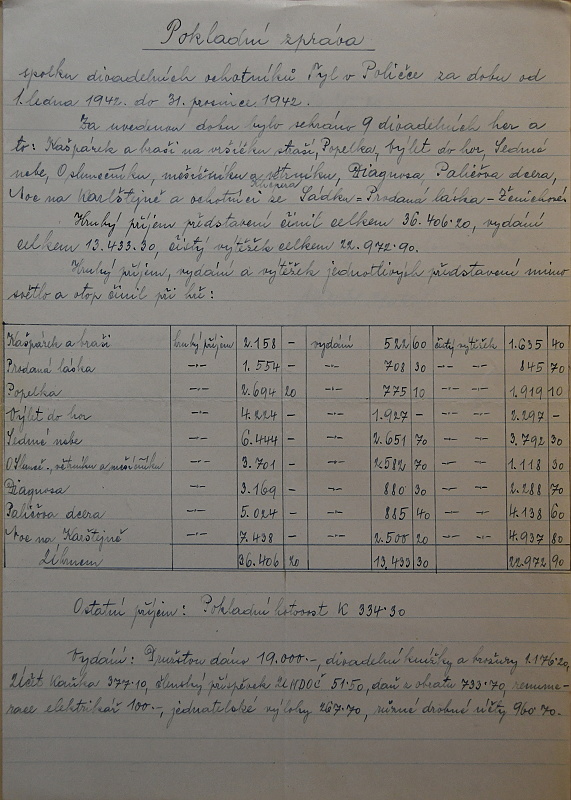 Pokladní zpráva
spolku divadelních ochotníků Tyl v Poličce za dobu od
1. ledna 1942. do 31. prosince 1942.
Za uvedenou dobu bylo sehráno 9 divadelních her a
to: Kašpárek a braši na vršíčku straší, Popelka, Výlet do hor, Sedmé
nebe, O slunečníku, měsíčníku a větrníku, Diagnosa, Paličova dcera,
Noc na Karlštejně a ochotníci ze Sádku = Prodaná láska = Ženichové
Hrubý příjem představení činil celkem 36.406·20, vydání
celkem 13.433·30, čistý výtěžek celkem 22.972·90.
Hrubý příjem, vydání a výtěžek jednotlivých představení mimo
světlo a otop činil při hře:
Kašpárek a braši hrubý příjem 2.158 – vydání 522 60 čistý výtěžek 1.635 40
Prodaná láska –"– 1.554 – –"– 708 30 –"– –"– 845 70
Popelka –"– 2.694 20 –"– 775 10 –"– –"– 1.919 10
Výlet do hor –"– 4.224 – –"– 1.927 – –"– –"– 2.297 –
Sedmé nebe –"– 6.444 – –"– 2.651 70 –"– –"– 3.792 30
O Sluneč., větrníku a měsíčníku –"– 3.701 – –"– 2582 70 –"– –"– 1.118 30
Diagnosa –"– 3.169 – –"– 880 30 –"– –"– 2.288 70
Paličova dcera –"– 5.024 – –"– 885 40 –"– –"– 4.138 60
Noc na Karlštejně –"– 7.438 – –"– 2.500 20 –"– –"– 4.937 80
Úhrnem 36.406 20 13.433 30 22.972 90
Ostatní příjem: Pokladní hotovost K 334·30
Vydání: Družstvu dáno 19.000·–, divadelní knížky a brožury 1.176·20,
Účet Kavka 377·10, členský příspěvek ÚMDOČ 51·50, daň z obratu 733·70, remune-
race elektrikář 100·–, jednatelské výlohy 267·70, různé drobné účty 960·70.–